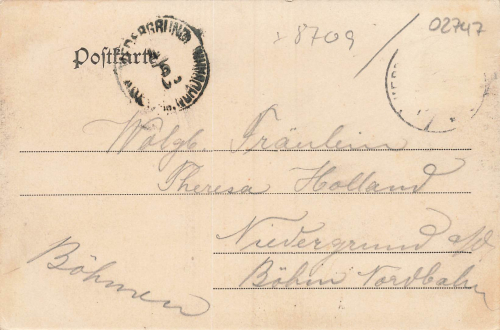 8709
02747
Postkarte
Wolgb. Fräulein
Theresa Holland
Niedergrund a/d
Böhm Nordbahn
Böhmen